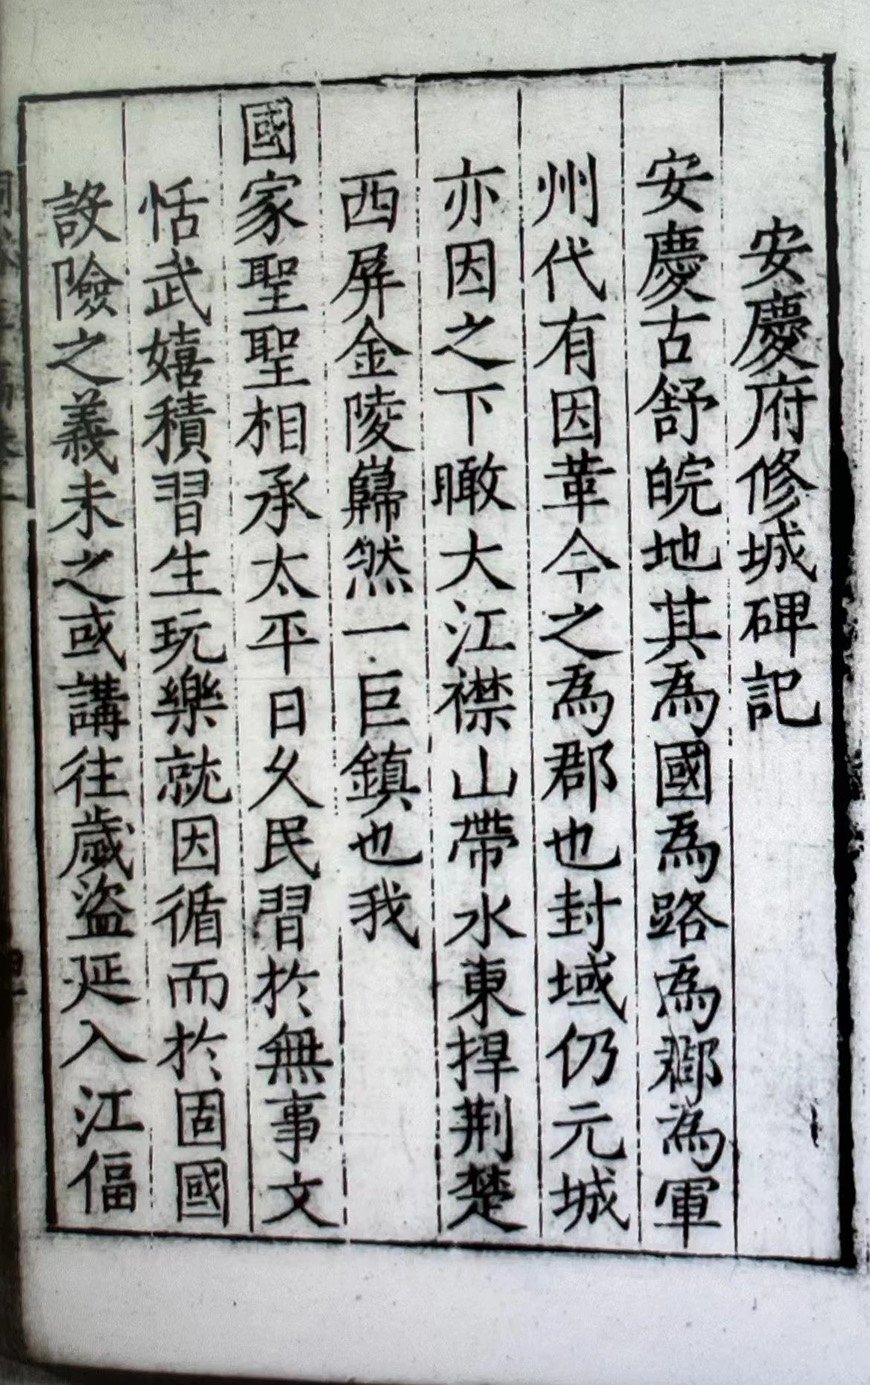 安慶府修城碑記
安慶古舒皖地其為國為路為郡為軍
州代有因革今之為郡也封域仍元城
亦因之下瞰大江襟山帶水東捍荆楚
西屏金陵巋然一巨鎮也我
國家聖聖相承太平日久民習於無事文
恬武嬉積習生玩樂就因循而於固國
設險之義未之或講往歲盜延入江偪